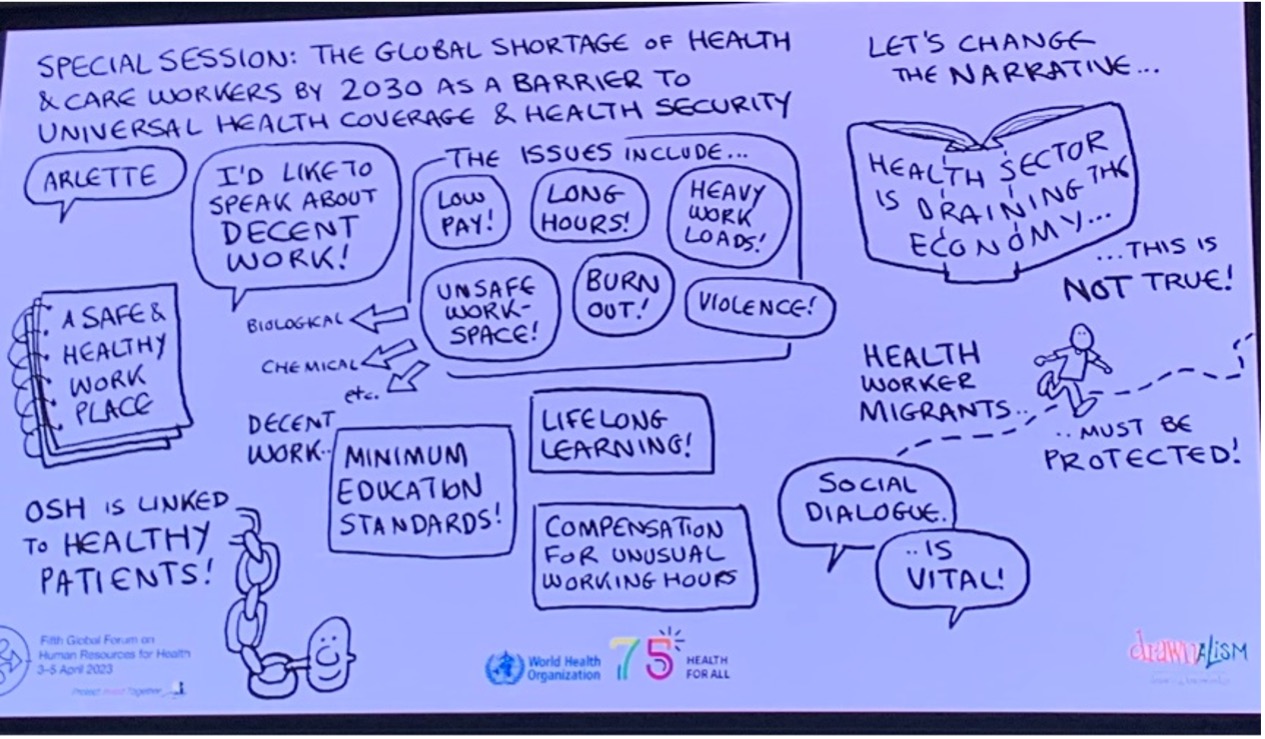 SPECIAL SESSION: THE GLOBAL SHORTAGE OF HEALTH
& CARE WORKERS BY 2030 AS A BARRIER TO
UNIVERSAL HEALTH COVERAGE & HEALTH SECURITY
ARLETTE
I'D LIKE TO
SPEAK ABOUT
DECENT
WORK!
THE ISSUES INCLUDE...
LOW
PAY!
LONG
HOURS!
HEAVY
WORK
LOADS!
UNSAFE
WORK-
SPACE!
BURN
OUT!
VIOLENCE!
BIOLOGICAL
CHEMICAL
etc.
A SAFE &
HEALTHY
WORK
PLACE
DECENT
WORK..
MINIMUM
EDUCATION
STANDARDS!
LIFELONG
LEARNING!
COMPENSATION
FOR UNUSUAL
WORKING HOURS
OSH IS LINKED
TO HEALTHY
PATIENTS!
LET'S CHANGE
THE NARRATIVE...
HEALTH SECTOR
IS DRAINING THE
ECONOMY...
...THIS IS
NOT TRUE!
HEALTH
WORKER
MIGRANTS..
..MUST BE
PROTECTED!
SOCIAL
DIALOGUE.
..IS
VITAL!
Fifth Global Forum on
Human Resources for Health
3–5 April 2023
Protect Invest Together
World Health
Organization
75
HEALTH
FOR ALL
drawnALISM